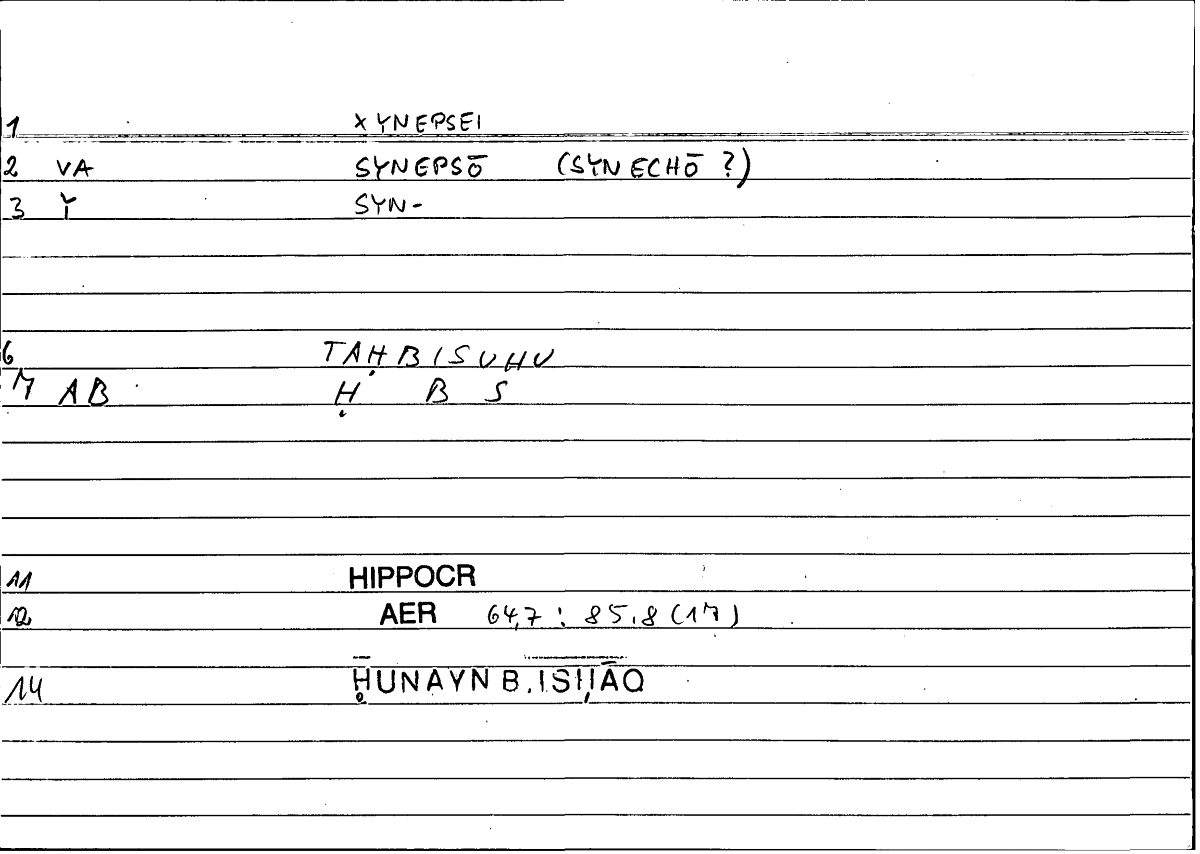 1 XYNEPSEI
2 VA SYNEPSŌ (SYNECHŌ ?)
3 Y SYN-
6 TAḤBISUHU
7 AB Ḥ B S
11 HIPPOCR
12 AER 64,7 : 85,8 (17)
14 ḤUNAYN B. ISḤĀQ